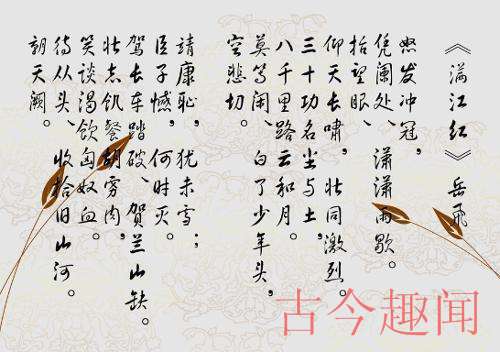 《满江红》岳飞
怒发冲冠，
凭阑处、潇潇雨歇。
抬望眼，
仰天长啸，壮同激烈。
三十功名尘与土，
八千里路云和月。
莫等闲、白了少年头，
空悲切。
靖康耻，犹未雪；
臣子憾，何时灭。
驾长车踏破、贺兰山缺。
壮志饥餐胡虏肉，
笑谈渴饮匈奴血。
待从头、收拾旧山河。
朝天阙。
古今趣闻